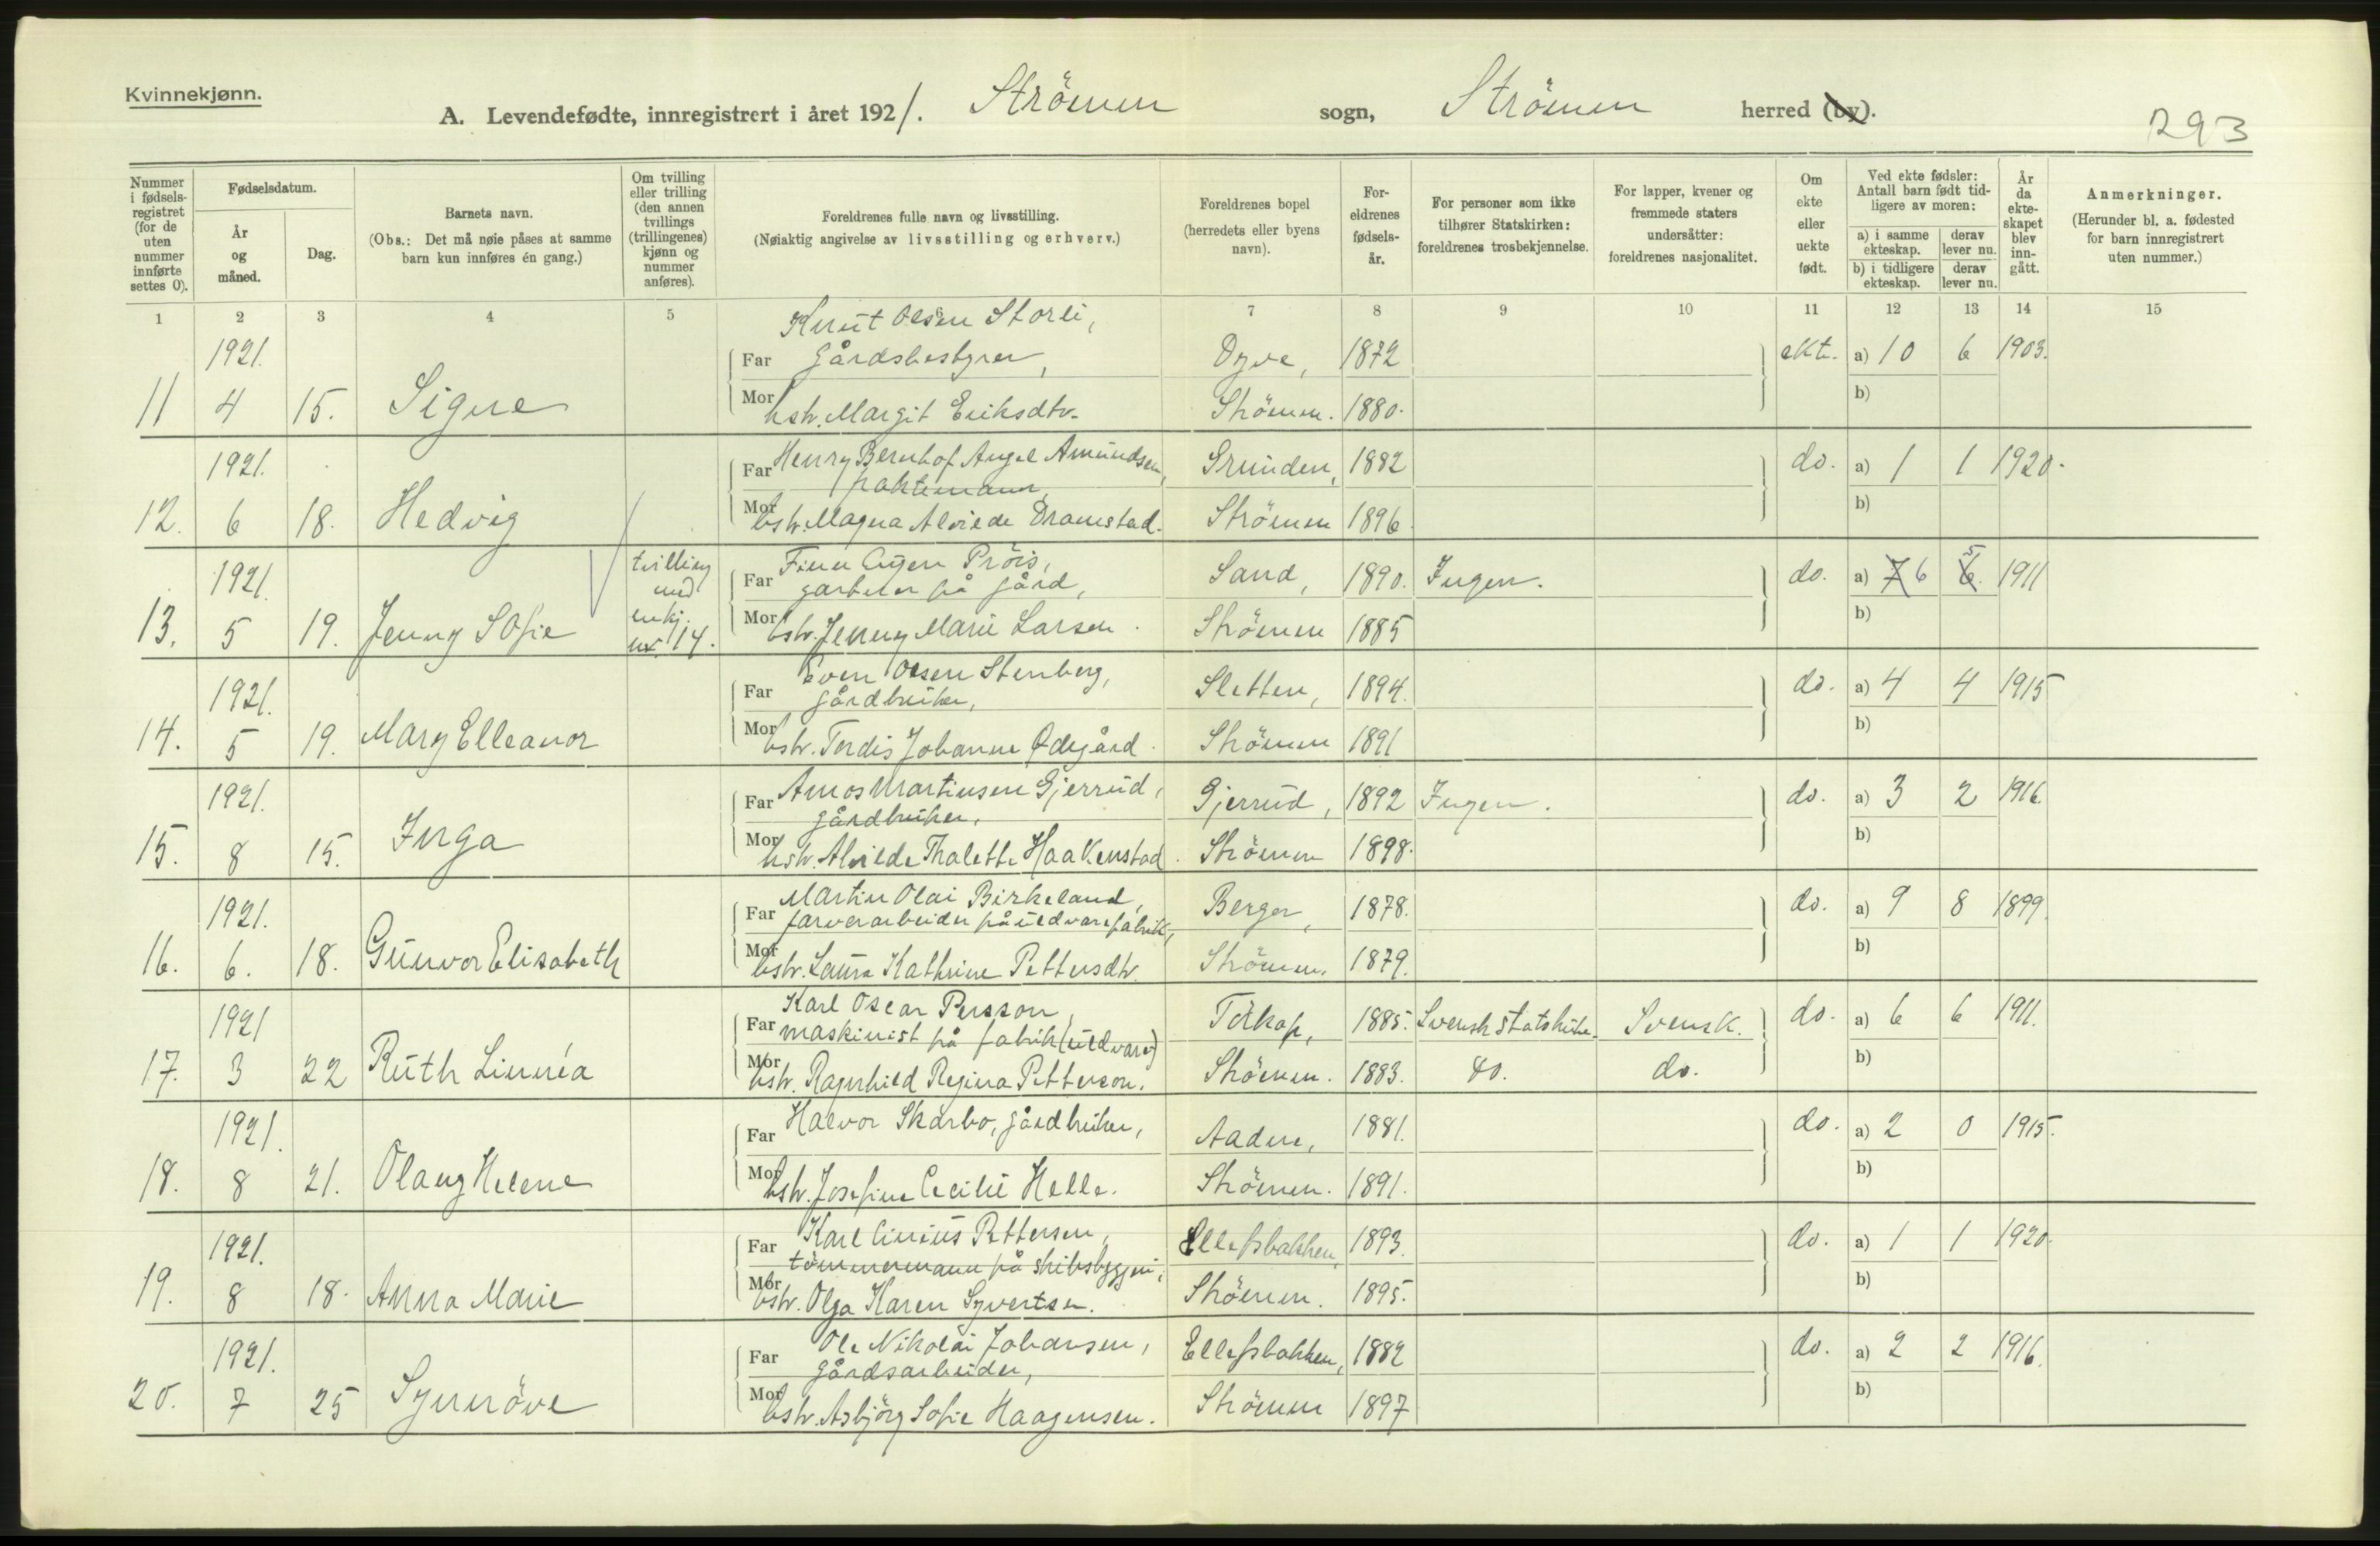 Kvinnekjønn.
A. Levendefødte, innregistrert i året 1921. Strömm sogn, Strömm herred (by).
293
Nummer i fødselsregistret (for de uten nummer innførte settes 0).
Fødselsdatum.
År og måned.
Dag.
Barnets navn.
(Obs.: Det må nøie påses at samme barn kun innføres én gang.)
Om tvilling eller trilling (den annen tvillings (trillingenes) kjønn og nummer anføres).
Foreldrenes fulle navn og livsstilling.
(Nøiaktig angivelse av livsstilling og erhverv.)
Foreldrenes bopel (herredets eller byens navn).
Foreldrenes fødselsår.
For personer som ikke tilhører Statskirken: foreldrenes trosbekjennelse.
For lapper, kvener og fremmede staters undersåtter: foreldrenes nasjonalitet.
Om ekte eller uekte født.
Ved ekte fødsler: Antall barn født tidligere av moren:
a) i samme ekteskap. derav lever nu.
b) i tidligere ekteskap. derav lever nu.
År da ekteskapet blev inngått.
Anmerkninger.
(Herunder bl. a. fødested for barn innregistrert uten nummer.)
1 2 3 4 5 7 8 9 10 11 12 13 14 15
Knut Olsen Storli,
1921. Far gårdsbestyrer, Dyve, 1872 ekte. a) 10 6 1903.
11 4 15. Signe Mor hstr. Margit Eriksdtr. Strömm. 1880. b)
1921. Far Henry Bernhof Angel Amundsen, Grunden, 1882 do. a) 1 1 1920.
12. 6 18. Hedvig Mor hstr. Magna Alvilde Dramstad. Strömm 1896. b)
1921. tvilling med Far Finn Pröis, gård, Sand, 1890. Ingen. do. a) 7 6 6 5 1911
13. 5 19. Jenny Sofie nr. 14. Mor hstr. Jenny Marie Larsen. Strömm 1885 b)
Even Olsen Stenberg,
1921. Far gårdbruker, Sletten, 1894. do. a) 4 4 1915
14. 5 19. Mary Elleanor Mor hstr. Tordis Johanne Ødegård. Strömm 1891 b)
1921. Far Amos Martinsen Gjerrud, gårdbruker, Gjerrud, 1892 Ingen. do. a) 3 2 1916.
15. 8 15. Inga Mor hstr. Alvilde Thalette Haakenstad. Strömm 1898. b)
Martin Olai Birkeland,
1921. Far farverarbeider på uldvarefabrik, Berger, 1878. do. a) 9 8 1899.
16. 6. 18. Gunvor Elisabeth Mor hstr. Laura Kathrine Pettersdtr. Strömm. 1879. b)
Karl Oscar Persson,
1921 Far maskinist på fabrik (uldvare) Tørkop, 1885. Svensk statskirke. Svensk. do. a) 6 6 1911.
17. 3 22 Ruth Linnéa Mor hstr. Ragnhild Regina Petterson. Strömm. 1883. do. do. b)
1921. Far Halvor Skarbo, gårdbruker, Aadne, 1881. do. a) 2 0 1915.
18. 8 21. Olaug Helene Mor hstr. Josefine Cecilie Helle. Strömm. 1891. b)
1921. Far Karl Pettersen, tömmermann på skibsbyggeri, Ellefsbakken, 1893. do. a) 1 1 1920.
19. 8 18. Anna Marie Mor hstr. Olga Karen Syvertsen. Strömm. 1895. b)
1921. Far Ole Nikolai Johansen, gårdsarbeider, Ellefsbakken, 1882 do. a) 2 2 1916.
20. 7 25 Synnöve Mor hstr. Asbjörg Sofie Haagensen. Strömm 1897 b)